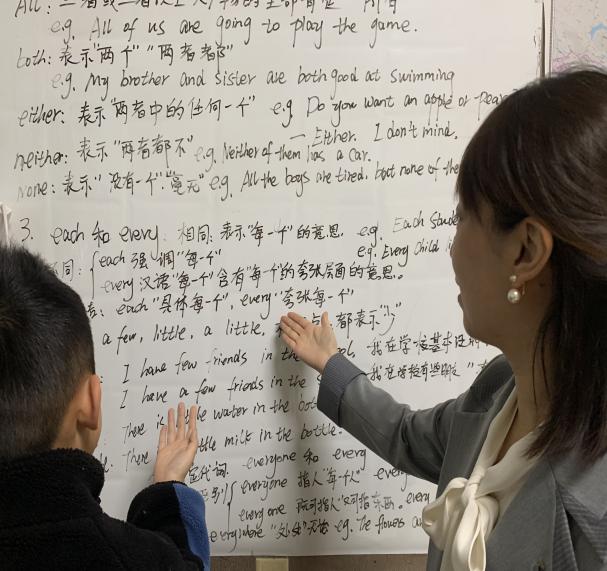 All: 二者或二者以上人/物的全部肯定
e.g. All of us are going to play the game.
both: 表示"两个" "两者都"
e.g. My brother and sister are both good at swimming
either: 表示"两者中的任何一个" e.g. Do you want an apple or pear?
— Either. I don't mind.
neither: 表示"两者都不" e.g. Neither of them has a car.
None: 表示"没有一个" e.g. All the boys are tired, but none of the
3. each 和 every: 相同: 表示"每一个"的意思. e.g. Each stude
同: each 强调"每一个" e.g. Every child i
every 汉语"每一个"含有"每一个"的夸张层面的意思。
each "具体每一个", every "夸张每一个"
a few, little, a little, 都表示"少"
I have few friends in the 我在学校基本
I have a few friends in the 我在学校有些
There is the water in the bot
There tle milk in the bottle.
代词. everyone 和 every
everyone 指人"每个人"
every one 既可指人又可指东西. every
everywhere e.g. The flowers a